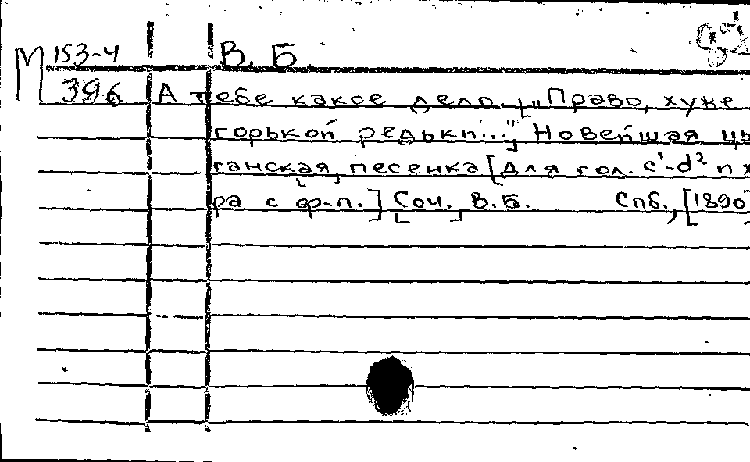 М 153-4 В. Б.
396 А тебе какое дело. „Право, хуже
горькой редьки...", Новейшая цы-
ганская песенка [для гол. c¹-d² и х
ра с ф-п.] Соч. В.Б. Спб., [1890